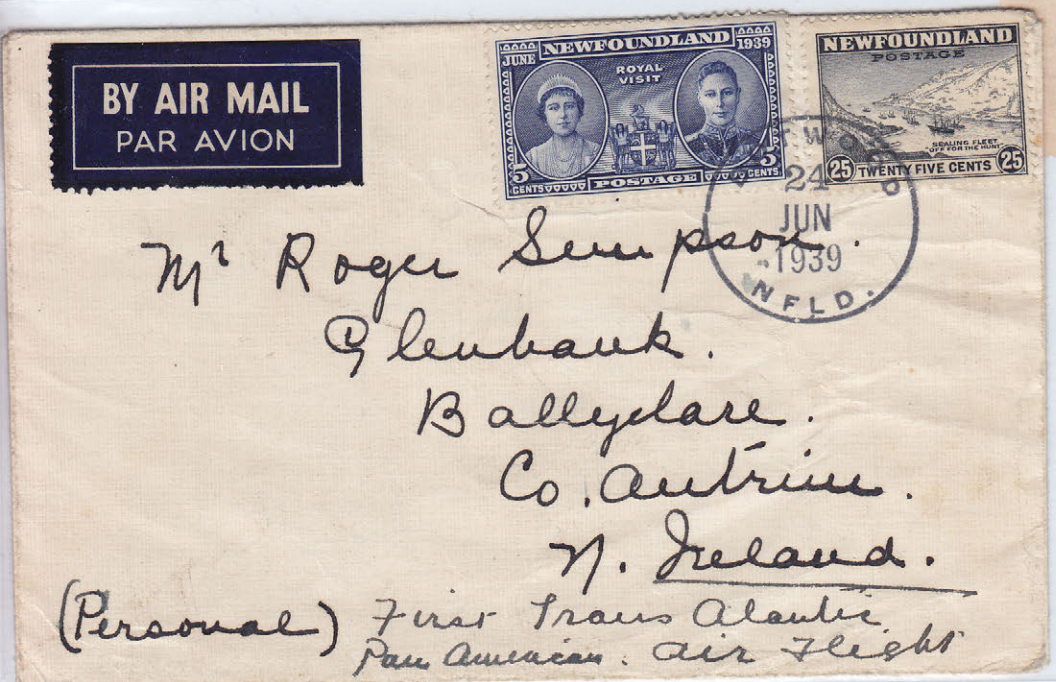 BY AIR MAIL
PAR AVION
NEWFOUNDLAND
JUNE
1939
ROYAL
VISIT
5
CENTS
POSTAGE
5
CENTS
NEWFOUNDLAND
POSTAGE
SEALING FLEET
"OFF FOR THE HUNT"
25
TWENTY FIVE CENTS
25
24
JUN
1939
NFLD.
Mr Roger Simpson.
Glenbank.
Ballyclare.
Co. Antrim.
N. Ireland.
(Personal)
First Trans Alantic
Pan American. air Flight